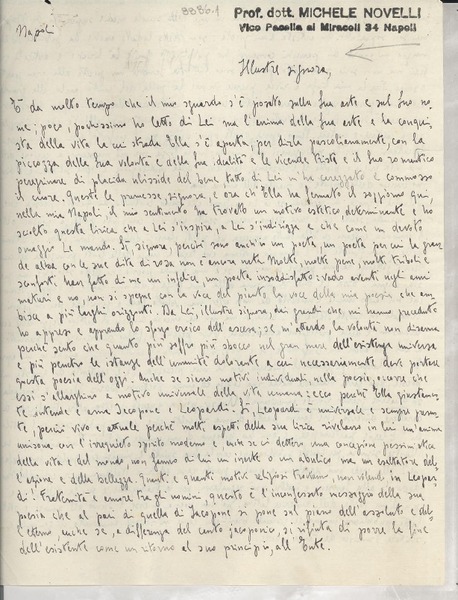 8886-1
Prof. dott. MICHELE NOVELLI
Vico Pacella ai Miracoli 34 Napoli
Napoli
Illustre signora,
È da molto tempo che il mio sguardo s'è posato sulla Sua arte e sul Suo no-
me; poco, pochissimo ho letto di Lei ma l'anima della Sua arte e la conqui-
sta della vita la cui strada Ella s'è aperta, per dirla pascolianamente, con la
piccozza della Sua volontà e della Sua idealità e le vicende tristi e il Suo romantico
peregrinare di placida ulisside del bene tutto di Lei m'ha carezzato e commosso
il cuore. Queste le premesse, signora, e ora ch'Ella ha fermato il soggiorno qui,
nella mia Napoli, il mio sentimento ha trovato un motivo estetico determinante e ho
scelto questa lirica che a Lei s'inspira, a Lei s'indirizza e che come un devoto
omaggio Le mando. Sì, signora, perché sono anch'io un poeta, un poeta per cui la gran-
de alba con le sue dita di rosa non è ancora nata. Molte, molte pene, molti triboli e
sconforti han fatto di me un infelice, un poeta insoddisfatto: vado avanti negli anni
maturi e no, non si spegne con la voce del pianto la voce della mia poesia che am-
bisca a più larghi orizzonti. Da Lei, illustre signora, dai grandi che mi hanno preceduto
ho appreso e apprendo lo sforzo eroico dell'ascesa; se m'attardo, la volontà non disarma
perché sento che quanto più soffro più sbocco nel gran mare dell'esistenza universa
e più penetro le istanze dell'umanità dolorante a cui necessariamente deve portarsi
questa poesia dell'oggi. Anche se siano motivi individuali, nella poesia, occorre che
essi s'allarghino a motivo universale della vita umana: ecco perché Ella giustamen-
te intende e ama Jacopone e Leopardi. Sì, Leopardi è universale e sempre pian-
te, perciò vivo e attuale perché molti aspetti della sua lirica rivelano in lui un'anima
unisona con l'irrequieto spirito moderno e, anche se ci dettero una concezione pessimistica
della vita e del mondo, non fanno di lui un inerte o un abulico ma un esaltatore del-
l'azione e della bellezza. Quanti e quanti motivi religiosi troviamo, non volendo in Leopar-
di! Fraternità e amore tra gli uomini, questo è l'inconfessato messaggio della sua
poesia che al pari di quella di Jacopone si pone sul piano dell'assoluto e del-
l'eterno, anche se, a differenza del canto jacoponico, si rifiuta di porre la fine
dell'esistente come un ritorno al suo principio, all'Ente.